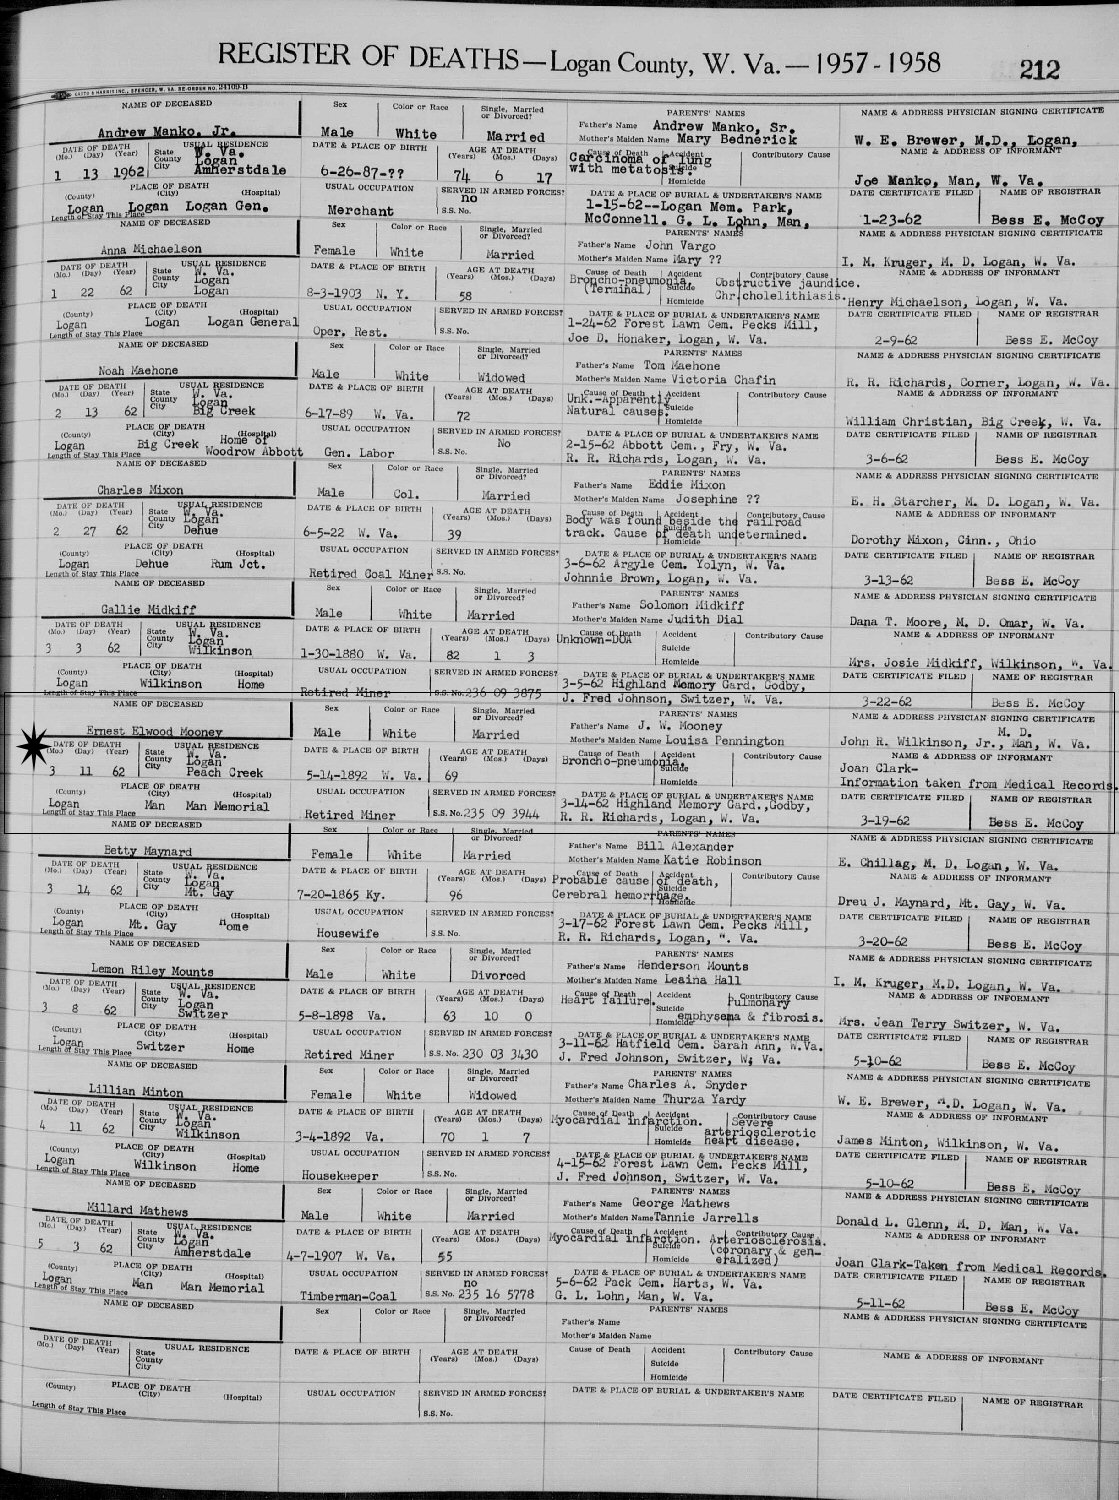 REGISTER OF DEATHS—Logan County, W. Va.—1957-1958 212
CASTO & HARRIS INC., SPENCER, W. VA. RE-ORDER NO. 24109-B
NAME OF DECEASED Sex Color or Race Single, Married or Divorced? PARENTS' NAMES NAME & ADDRESS PHYSICIAN SIGNING CERTIFICATE
Andrew Manko, Jr. Male White Married Father's Name Andrew Manko, Sr.
Mother's Maiden Name Mary Bednerick W. E. Brewer, M.D., Logan,
DATE OF DEATH (Mo.) (Day) (Year) 1 13 1962 USUAL RESIDENCE State W. Va. County Logan City Amherstdale
DATE & PLACE OF BIRTH 6-26-87-?? AGE AT DEATH (Years) (Mos.) (Days) 74 6 17
Cause of Death Accident Suicide Homicide Contributory Cause Carcinoma of lung with metatosis.
NAME & ADDRESS OF INFORMANT Joe Manko, Man, W. Va.
PLACE OF DEATH (County) (City) (Hospital) Logan Logan Logan Gen.
Length of Stay This Place
USUAL OCCUPATION Merchant SERVED IN ARMED FORCES? no S.S. No.
DATE & PLACE OF BURIAL & UNDERTAKER'S NAME 1-15-62--Logan Mem. Park,
McConnell. G. L. Lohn, Man,
DATE CERTIFICATE FILED 1-23-62 NAME OF REGISTRAR Bess E. McCoy
NAME OF DECEASED Sex Color or Race Single, Married or Divorced? PARENTS' NAMES NAME & ADDRESS PHYSICIAN SIGNING CERTIFICATE
Anna Michaelson Female White Married Father's Name John Vargo
Mother's Maiden Name Mary ?? I. M. Kruger, M. D. Logan, W. Va.
DATE OF DEATH (Mo.) (Day) (Year) 1 22 62 USUAL RESIDENCE State W. Va. County Logan City Logan
DATE & PLACE OF BIRTH 8-3-1903 N. Y. AGE AT DEATH (Years) (Mos.) (Days) 58
Cause of Death Accident Suicide Homicide Contributory Cause Broncho-pneumonia. (Terminal) Obstructive jaundice. Chr. cholelithiasis.
NAME & ADDRESS OF INFORMANT Henry Michaelson, Logan, W. Va.
PLACE OF DEATH (County) (City) (Hospital) Logan Logan Logan General
Length of Stay This Place
USUAL OCCUPATION Oper. Rest. SERVED IN ARMED FORCES? S.S. No.
DATE & PLACE OF BURIAL & UNDERTAKER'S NAME 1-24-62 Forest Lawn Cem. Pecks Mill,
Joe D. Honaker, Logan, W. Va.
DATE CERTIFICATE FILED 2-9-62 NAME OF REGISTRAR Bess E. McCoy
NAME OF DECEASED Sex Color or Race Single, Married or Divorced? PARENTS' NAMES NAME & ADDRESS PHYSICIAN SIGNING CERTIFICATE
Noah Maehone Male White Widowed Father's Name Tom Maehone
Mother's Maiden Name Victoria Chafin R. R. Richards, Corner, Logan, W. Va.
DATE OF DEATH (Mo.) (Day) (Year) 2 13 62 USUAL RESIDENCE State W. Va. County Logan City Big Creek
DATE & PLACE OF BIRTH 6-17-89 W. Va. AGE AT DEATH (Years) (Mos.) (Days) 72
Cause of Death Accident Suicide Homicide Contributory Cause Unk.-Apparently Natural causes.
NAME & ADDRESS OF INFORMANT William Christian, Big Creek, W. Va.
PLACE OF DEATH (County) (City) (Hospital) Logan Big Creek Home of Woodrow Abbott
Length of Stay This Place
USUAL OCCUPATION Gen. Labor SERVED IN ARMED FORCES? No S.S. No.
DATE & PLACE OF BURIAL & UNDERTAKER'S NAME 2-15-62 Abbott Cem., Fry, W. Va.
R. R. Richards, Logan, W. Va.
DATE CERTIFICATE FILED 3-6-62 NAME OF REGISTRAR Bess E. McCoy
NAME OF DECEASED Sex Color or Race Single, Married or Divorced? PARENTS' NAMES NAME & ADDRESS PHYSICIAN SIGNING CERTIFICATE
Charles Mixon Male Col. Married Father's Name Eddie Mixon
Mother's Maiden Name Josephine ?? E. H. Starcher, M. D. Logan, W. Va.
DATE OF DEATH (Mo.) (Day) (Year) 2 27 62 USUAL RESIDENCE State W. Va. County Logan City Dehue
DATE & PLACE OF BIRTH 6-5-22 W. Va. AGE AT DEATH (Years) (Mos.) (Days) 39
Cause of Death Accident Suicide Homicide Contributory Cause Body was found beside the railroad track. Cause of death undetermined.
NAME & ADDRESS OF INFORMANT Dorothy Mixon, Cinn., Ohio
PLACE OF DEATH (County) (City) (Hospital) Logan Dehue Rum Jct.
Length of Stay This Place
USUAL OCCUPATION Retired Coal Miner SERVED IN ARMED FORCES? S.S. No.
DATE & PLACE OF BURIAL & UNDERTAKER'S NAME 3-6-62 Argyle Cem. Yolyn, W. Va.
Johnnie Brown, Logan, W. Va.
DATE CERTIFICATE FILED 3-13-62 NAME OF REGISTRAR Bess E. McCoy
NAME OF DECEASED Sex Color or Race Single, Married or Divorced? PARENTS' NAMES NAME & ADDRESS PHYSICIAN SIGNING CERTIFICATE
Gallie Midkiff Male White Married Father's Name Solomon Midkiff
Mother's Maiden Name Judith Dial Dana T. Moore, M. D. Omar, W. Va.
DATE OF DEATH (Mo.) (Day) (Year) 3 3 62 USUAL RESIDENCE State W. Va. County Logan City Wilkinson
DATE & PLACE OF BIRTH 1-30-1880 W. Va. AGE AT DEATH (Years) (Mos.) (Days) 82 1 3
Cause of Death Accident Suicide Homicide Contributory Cause Unknown-DOA
NAME & ADDRESS OF INFORMANT Mrs. Josie Midkiff, Wilkinson, W. Va.
PLACE OF DEATH (County) (City) (Hospital) Logan Wilkinson Home
Length of Stay This Place
USUAL OCCUPATION Retired Miner SERVED IN ARMED FORCES? S.S. No. 236 09 3875
DATE & PLACE OF BURIAL & UNDERTAKER'S NAME 3-5-62 Highland Memory Gard. Godby,
J. Fred Johnson, Switzer, W. Va.
DATE CERTIFICATE FILED 3-22-62 NAME OF REGISTRAR Bess E. McCoy
NAME OF DECEASED Sex Color or Race Single, Married or Divorced? PARENTS' NAMES NAME & ADDRESS PHYSICIAN SIGNING CERTIFICATE
Ernest Elwood Mooney Male White Married Father's Name J. W. Mooney
Mother's Maiden Name Louisa Pennington John R. Wilkinson, Jr., M. D. Man, W. Va.
DATE OF DEATH (Mo.) (Day) (Year) 3 11 62 USUAL RESIDENCE State W. Va. County Logan City Peach Creek
DATE & PLACE OF BIRTH 5-14-1892 W. Va. AGE AT DEATH (Years) (Mos.) (Days) 69
Cause of Death Accident Suicide Homicide Contributory Cause Broncho-pneumonia.
NAME & ADDRESS OF INFORMANT Joan Clark-
Information taken from Medical Records.
PLACE OF DEATH (County) (City) (Hospital) Logan Man Man Memorial
Length of Stay This Place
USUAL OCCUPATION Retired Miner SERVED IN ARMED FORCES? S.S. No. 235 09 3944
DATE & PLACE OF BURIAL & UNDERTAKER'S NAME 3-14-62 Highland Memory Gard.,Godby,
R. R. Richards, Logan, W. Va.
DATE CERTIFICATE FILED 3-19-62 NAME OF REGISTRAR Bess E. McCoy
NAME OF DECEASED Sex Color or Race Single, Married or Divorced? PARENTS' NAMES NAME & ADDRESS PHYSICIAN SIGNING CERTIFICATE
Betty Maynard Female White Married Father's Name Bill Alexander
Mother's Maiden Name Katie Robinson E. Chillag, M. D. Logan, W. Va.
DATE OF DEATH (Mo.) (Day) (Year) 3 14 62 USUAL RESIDENCE State W. Va. County Logan City Mt. Gay
DATE & PLACE OF BIRTH 7-20-1865 Ky. AGE AT DEATH (Years) (Mos.) (Days) 96
Cause of Death Accident Suicide Homicide Contributory Cause Probable cause of death, Cerebral hemorrhage.
NAME & ADDRESS OF INFORMANT Dreu J. Maynard, Mt. Gay, W. Va.
PLACE OF DEATH (County) (City) (Hospital) Logan Mt. Gay Home
Length of Stay This Place
USUAL OCCUPATION Housewife SERVED IN ARMED FORCES? S.S. No.
DATE & PLACE OF BURIAL & UNDERTAKER'S NAME 3-17-62 Forest Lawn Cem. Pecks Mill,
R. R. Richards, Logan, W. Va.
DATE CERTIFICATE FILED 3-20-62 NAME OF REGISTRAR Bess E. McCoy
NAME OF DECEASED Sex Color or Race Single, Married or Divorced? PARENTS' NAMES NAME & ADDRESS PHYSICIAN SIGNING CERTIFICATE
Lemon Riley Mounts Male White Divorced Father's Name Henderson Mounts
Mother's Maiden Name Leaina Hall I. M. Kruger, M.D. Logan, W. Va.
DATE OF DEATH (Mo.) (Day) (Year) 3 8 62 USUAL RESIDENCE State W. Va. County Logan City Switzer
DATE & PLACE OF BIRTH 5-8-1898 Va. AGE AT DEATH (Years) (Mos.) (Days) 63 10 0
Cause of Death Accident Suicide Homicide Contributory Cause Heart failure. Pulmonary emphysema & fibrosis.
NAME & ADDRESS OF INFORMANT Mrs. Jean Terry Switzer, W. Va.
PLACE OF DEATH (County) (City) (Hospital) Logan Switzer Home
Length of Stay This Place
USUAL OCCUPATION Retired Miner SERVED IN ARMED FORCES? S.S. No. 230 03 3430
DATE & PLACE OF BURIAL & UNDERTAKER'S NAME 3-11-62 Hatfield Cem. Sarah Ann, W.Va.
J. Fred Johnson, Switzer, W. Va.
DATE CERTIFICATE FILED 5-10-62 NAME OF REGISTRAR Bess E. McCoy
NAME OF DECEASED Sex Color or Race Single, Married or Divorced? PARENTS' NAMES NAME & ADDRESS PHYSICIAN SIGNING CERTIFICATE
Lillian Minton Female White Widowed Father's Name Charles A. Snyder
Mother's Maiden Name Thurza Yardy W. E. Brewer, M.D. Logan, W. Va.
DATE OF DEATH (Mo.) (Day) (Year) 4 11 62 USUAL RESIDENCE State W. Va. County Logan City Wilkinson
DATE & PLACE OF BIRTH 3-4-1892 Va. AGE AT DEATH (Years) (Mos.) (Days) 70 1 7
Cause of Death Accident Suicide Homicide Contributory Cause Myocardial infarction. Severe arteriosclerotic heart disease.
NAME & ADDRESS OF INFORMANT James Minton, Wilkinson, W. Va.
PLACE OF DEATH (County) (City) (Hospital) Logan Wilkinson Home
Length of Stay This Place
USUAL OCCUPATION Housekeeper SERVED IN ARMED FORCES? S.S. No.
DATE & PLACE OF BURIAL & UNDERTAKER'S NAME 4-15-62 Forest Lawn Cem. Pecks Mill,
J. Fred Johnson, Switzer, W. Va.
DATE CERTIFICATE FILED 5-10-62 NAME OF REGISTRAR Bess E. McCoy
NAME OF DECEASED Sex Color or Race Single, Married or Divorced? PARENTS' NAMES NAME & ADDRESS PHYSICIAN SIGNING CERTIFICATE
Millard Mathews Male White Married Father's Name George Mathews
Mother's Maiden Name Tannie Jarrells Donald L. Glenn, M. D. Man, W. Va.
DATE OF DEATH (Mo.) (Day) (Year) 5 3 62 USUAL RESIDENCE State W. Va. County Logan City Amherstdale
DATE & PLACE OF BIRTH 4-7-1907 W. Va. AGE AT DEATH (Years) (Mos.) (Days) 55
Cause of Death Accident Suicide Homicide Contributory Cause Myocardial infarction. Arteriosclerosis. (coronary & generalized)
NAME & ADDRESS OF INFORMANT Joan Clark-Taken from Medical Records.
PLACE OF DEATH (County) (City) (Hospital) Logan Man Man Memorial
Length of Stay This Place
USUAL OCCUPATION Timberman-Coal SERVED IN ARMED FORCES? no S.S. No. 235 16 5778
DATE & PLACE OF BURIAL & UNDERTAKER'S NAME 5-6-62 Pack Cem. Harts, W. Va.
G. L. Lohn, Man, W. Va.
DATE CERTIFICATE FILED 5-11-62 NAME OF REGISTRAR Bess E. McCoy
NAME OF DECEASED Sex Color or Race Single, Married or Divorced? PARENTS' NAMES NAME & ADDRESS PHYSICIAN SIGNING CERTIFICATE
Father's Name
Mother's Maiden Name
DATE OF DEATH (Mo.) (Day) (Year) USUAL RESIDENCE State County City
DATE & PLACE OF BIRTH AGE AT DEATH (Years) (Mos.) (Days)
Cause of Death Accident Suicide Homicide Contributory Cause
NAME & ADDRESS OF INFORMANT
PLACE OF DEATH (County) (City) (Hospital)
Length of Stay This Place
USUAL OCCUPATION SERVED IN ARMED FORCES? S.S. No.
DATE & PLACE OF BURIAL & UNDERTAKER'S NAME
DATE CERTIFICATE FILED NAME OF REGISTRAR